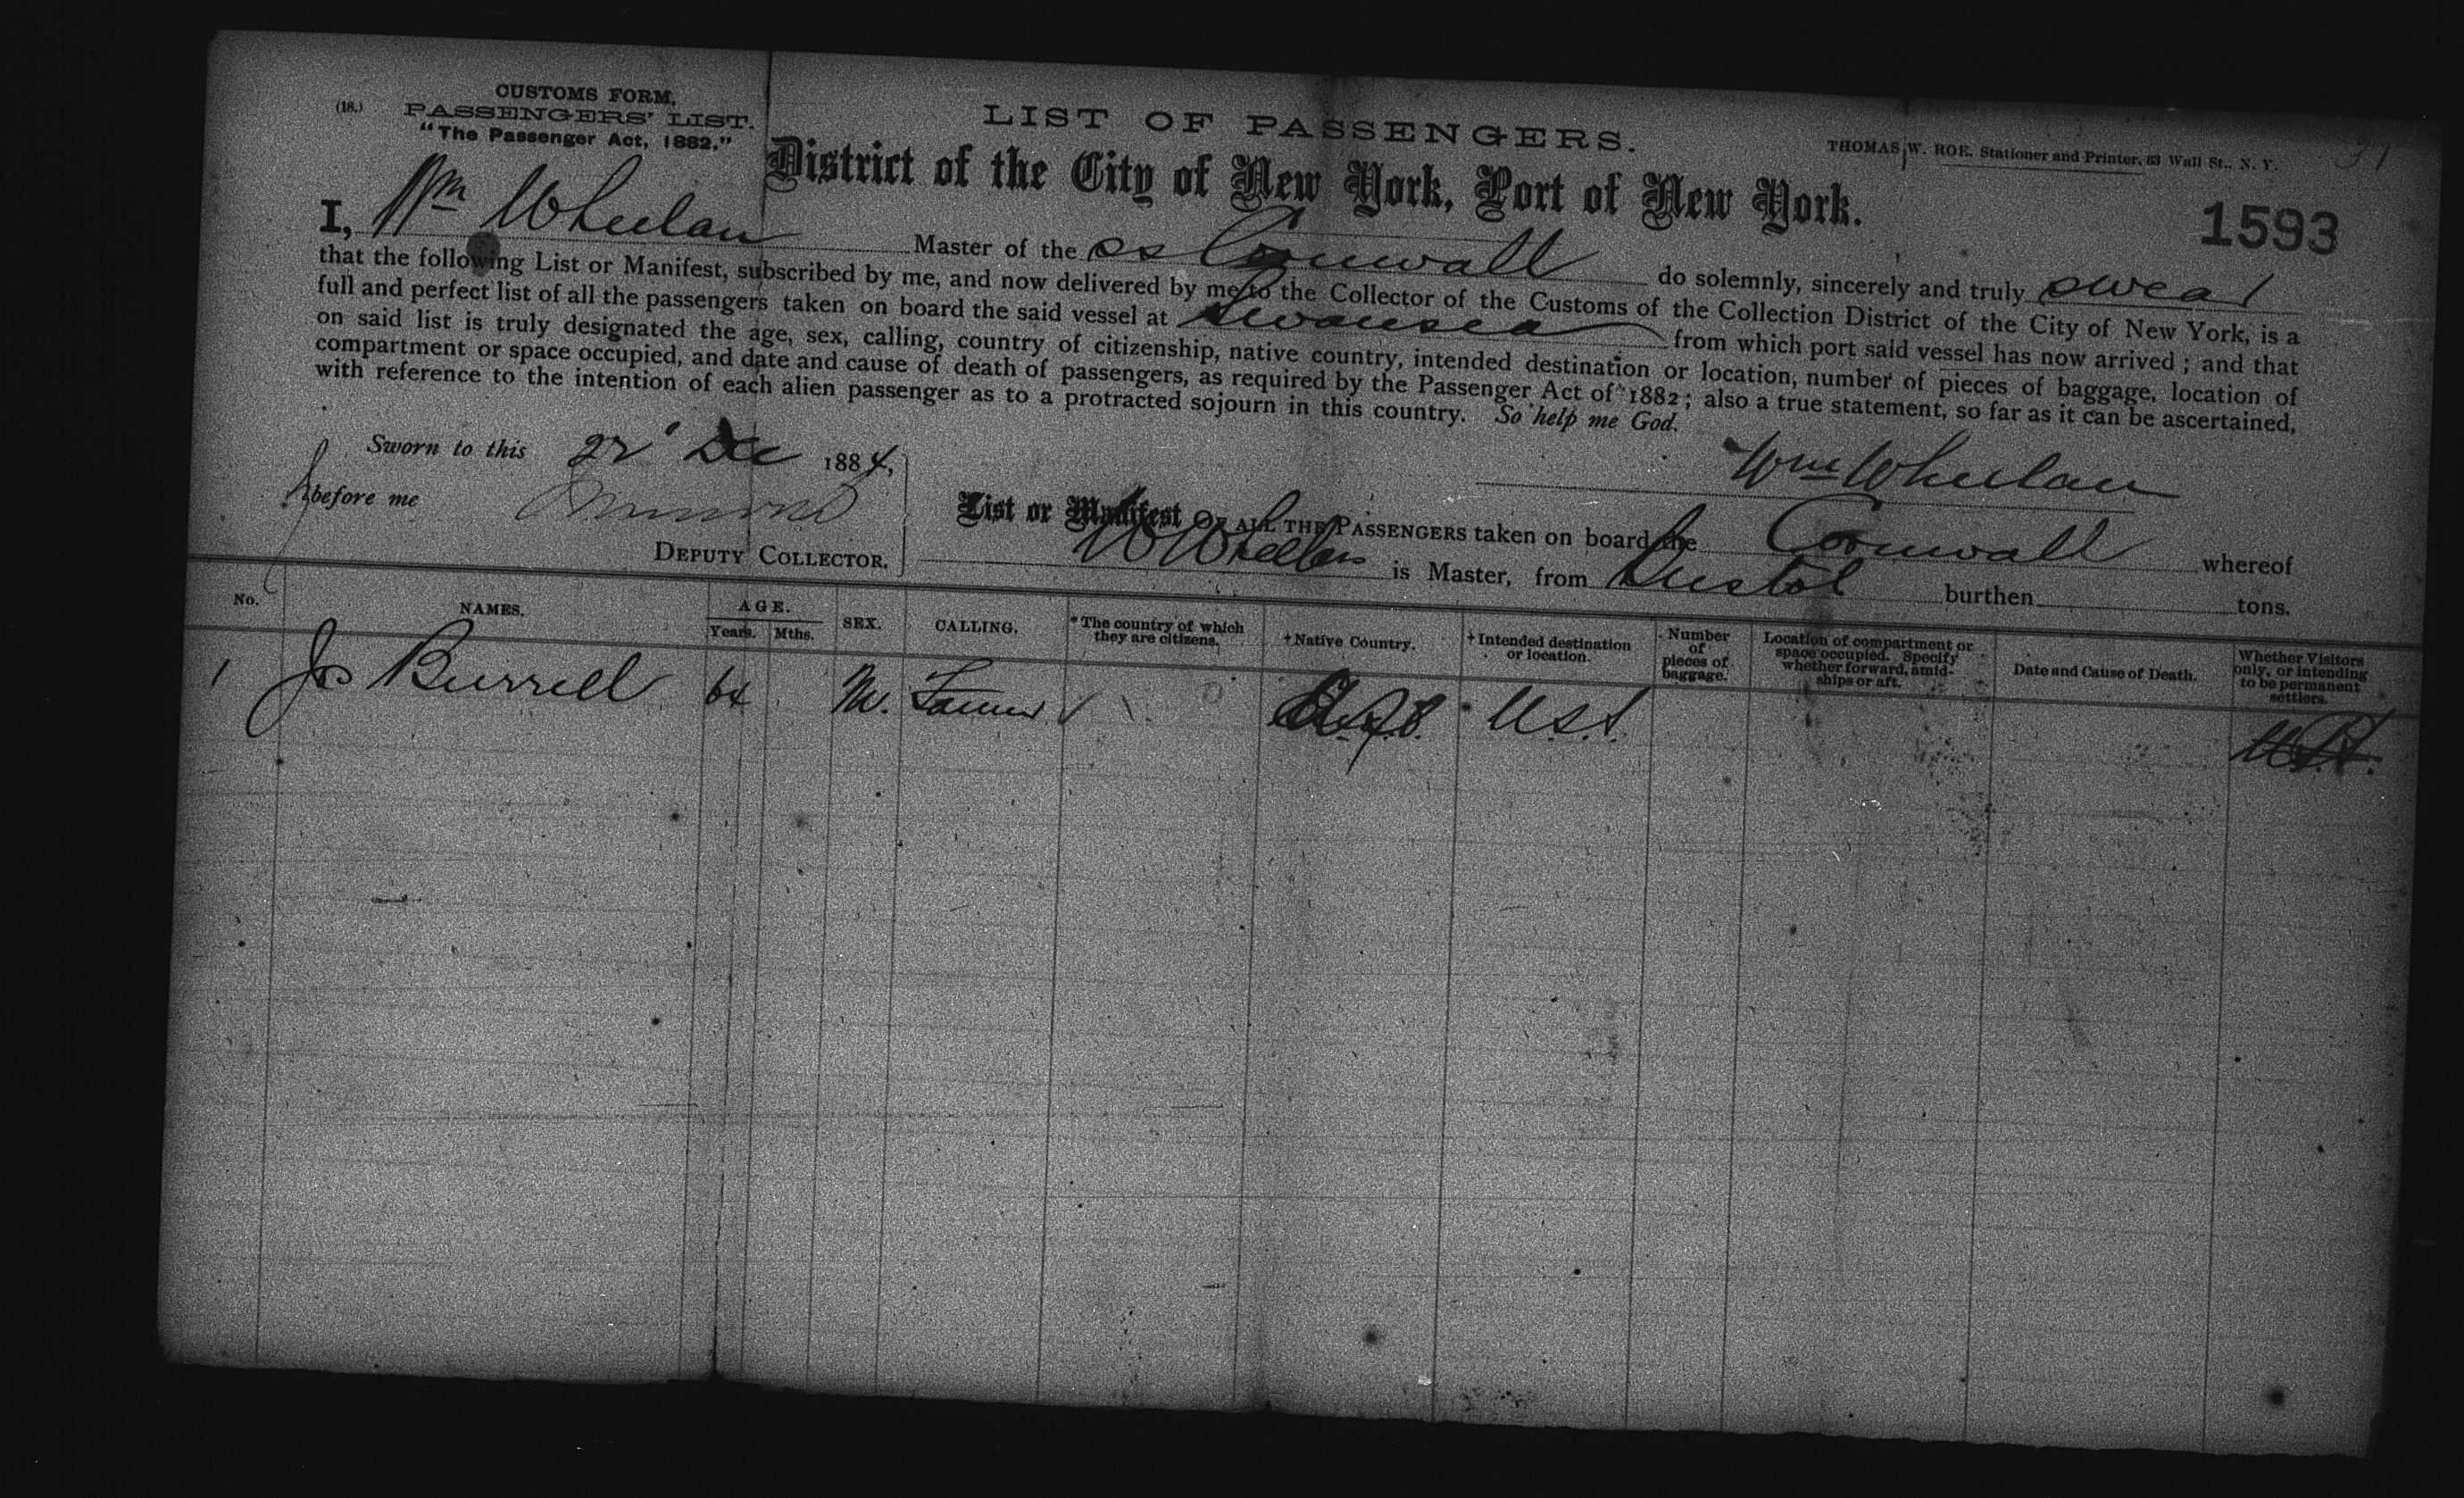 (18.) CUSTOMS FORM,
PASSENGERS' LIST.
"The Passenger Act, 1882."
LIST OF PASSENGERS.
THOMAS W. ROE, Stationer and Printer, 83 Wall St., N. Y.
31
District of the City of New York, Port of New York.
1593
I, Wm Whelan Master of the SS Cornwall do solemnly, sincerely and truly swear
that the following List or Manifest, subscribed by me, and now delivered by me to the Collector of the Customs of the Collection District of the City of New York, is a
full and perfect list of all the passengers taken on board the said vessel at Swansea from which port said vessel has now arrived; and that
on said list is truly designated the age, sex, calling, country of citizenship, native country, intended destination or location, number of pieces of baggage, location of
compartment or space occupied, and date and cause of death of passengers, as required by the Passenger Act of 1882; also a true statement, so far as it can be ascertained,
with reference to the intention of each alien passenger as to a protracted sojourn in this country. So help me God.
Sworn to this 22 Dec 1884,
Wm Whelan
before me
List or Manifest OF ALL THE PASSENGERS taken on board the Cornwall whereof
DEPUTY COLLECTOR.
is Master, from Bristol burthen tons.
No. NAMES. AGE. Years. Mths. SEX. CALLING. *The country of which they are citizens. †Native Country. †Intended destination or location. Number of pieces of baggage. Location of compartment or space occupied. Specify whether forward, amidships or aft. Date and Cause of Death. Whether Visitors only, or intending to be permanent settlers.
1 Jos Burrell 64 M. Farmer U.S.